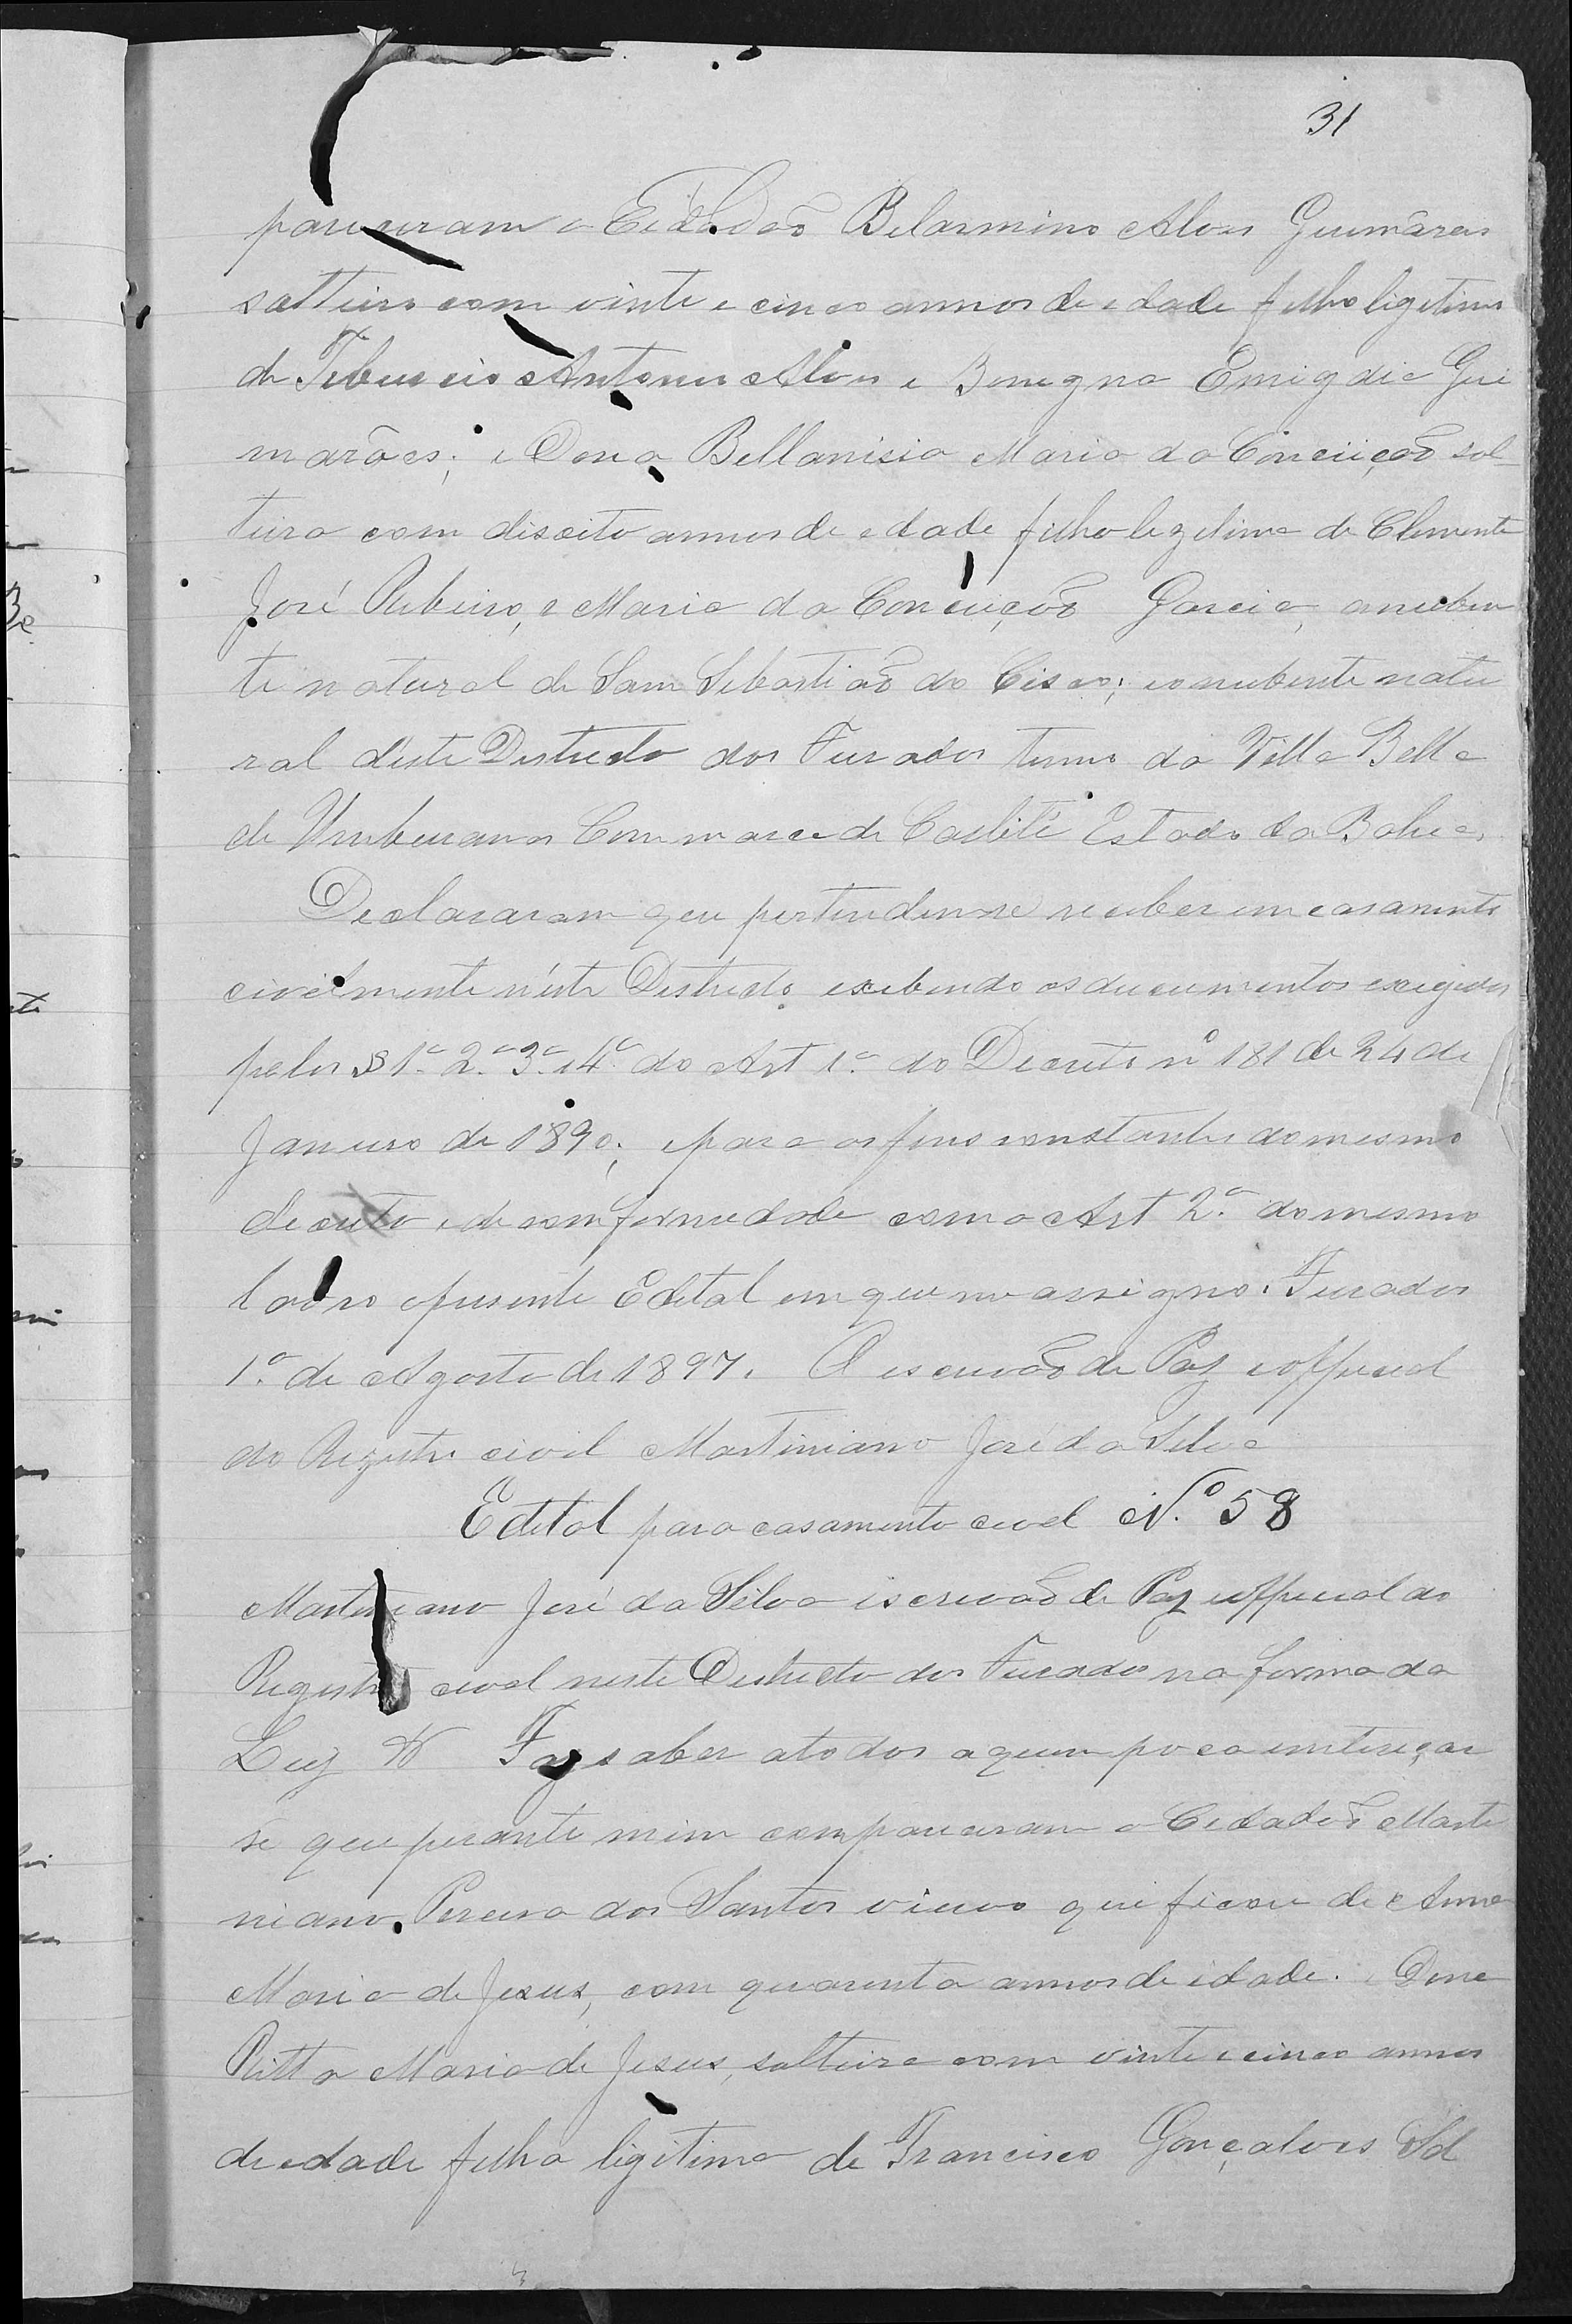 31
pareceram o Cidadão Belarmino Alves Guimarães
solteiro com vinte e cinco annos de edade filho ligetimo
de Tiburcio Antonio Alves e Benegna Emigdia Gui
marães; e Dona Bellanisia Maria da Conceição sol-
teira com disoito annos de edade filha legetima de Clemente
José Ribeiro, e Maria da Conceição Garcia, a nuben
te natural de Sam Sebastião do Cisco; conubente natu
ral deste Destricto dos Furados termo da Villa Bella
de Umburanas Commarca de Caitité Estado da Bahia,
Declararam que pertendem-se receber em casamento
civelmente n'este Destricto exebendo os ducumentos exigidos
pelos §§ 1º 2º 3º e 4º do Art 1º do Decreto nº 181 de 24 de
Janeiro de 1890; e para os fins constantes do mesmo
decreto e de comformedade com o Art 2º do mesmo
lavro o presente Edetal em que me assigno. Furados
1º de Agosto de 1897. O escrivão de Paz e official
do Registro civil Martiniano José da Silva
Edetal para casamento cevel Nº 58
Martiniano José da Silva escrivão de Paz e official do
Registro cevel neste Destricto dos Furados na forma da
Ley & Faz saber a todos a quem poca entereçar
se que perante mim compareceram o Cedadão Marti
niano Pereira dos Santos viuvo que ficou de Anna
Maria de Jesus, com quarenta annos de idade. e Dona
Ritta Maria de Jesus, solteira com vinte e cinco annos
de edade filha ligetima de Francisco Gonçalves Sal